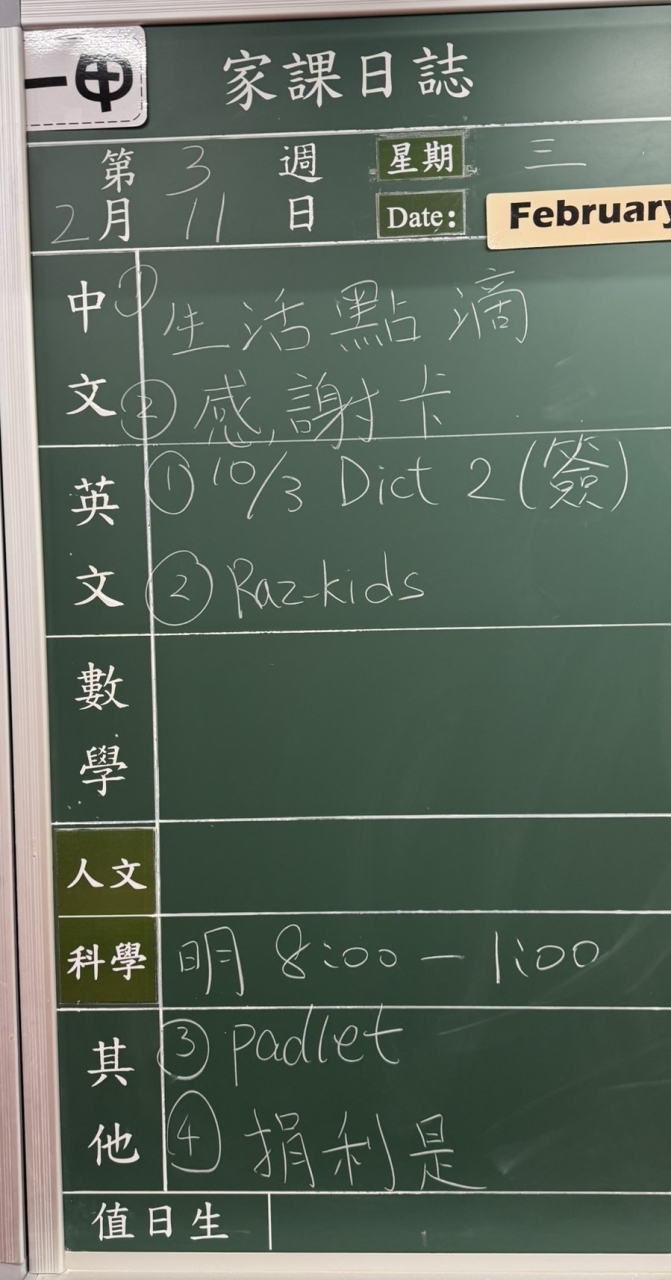 一甲
家課日誌
第 3 週 星期 三
2月 11 日 Date: February
中文 ① 生活點滴
② 感謝卡
英文 ① 10/3 Dict 2 (簽)
② Raz-kids
數學
人文
科學 明 8:00 — 1:00
其他 ③ padlet
④ 捐利是
值日生